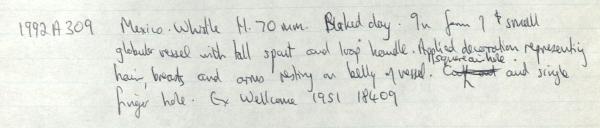 1992 A 309 Mexico. Whistle H. 70 mm. Baked clay. In form of small
globular vessel with tall spout and loop handle. Applied decoration representing
hair, breasts and arms resting on belly of vessel. A square air hole and single
finger hole. Ex Wellcome 1951 18409